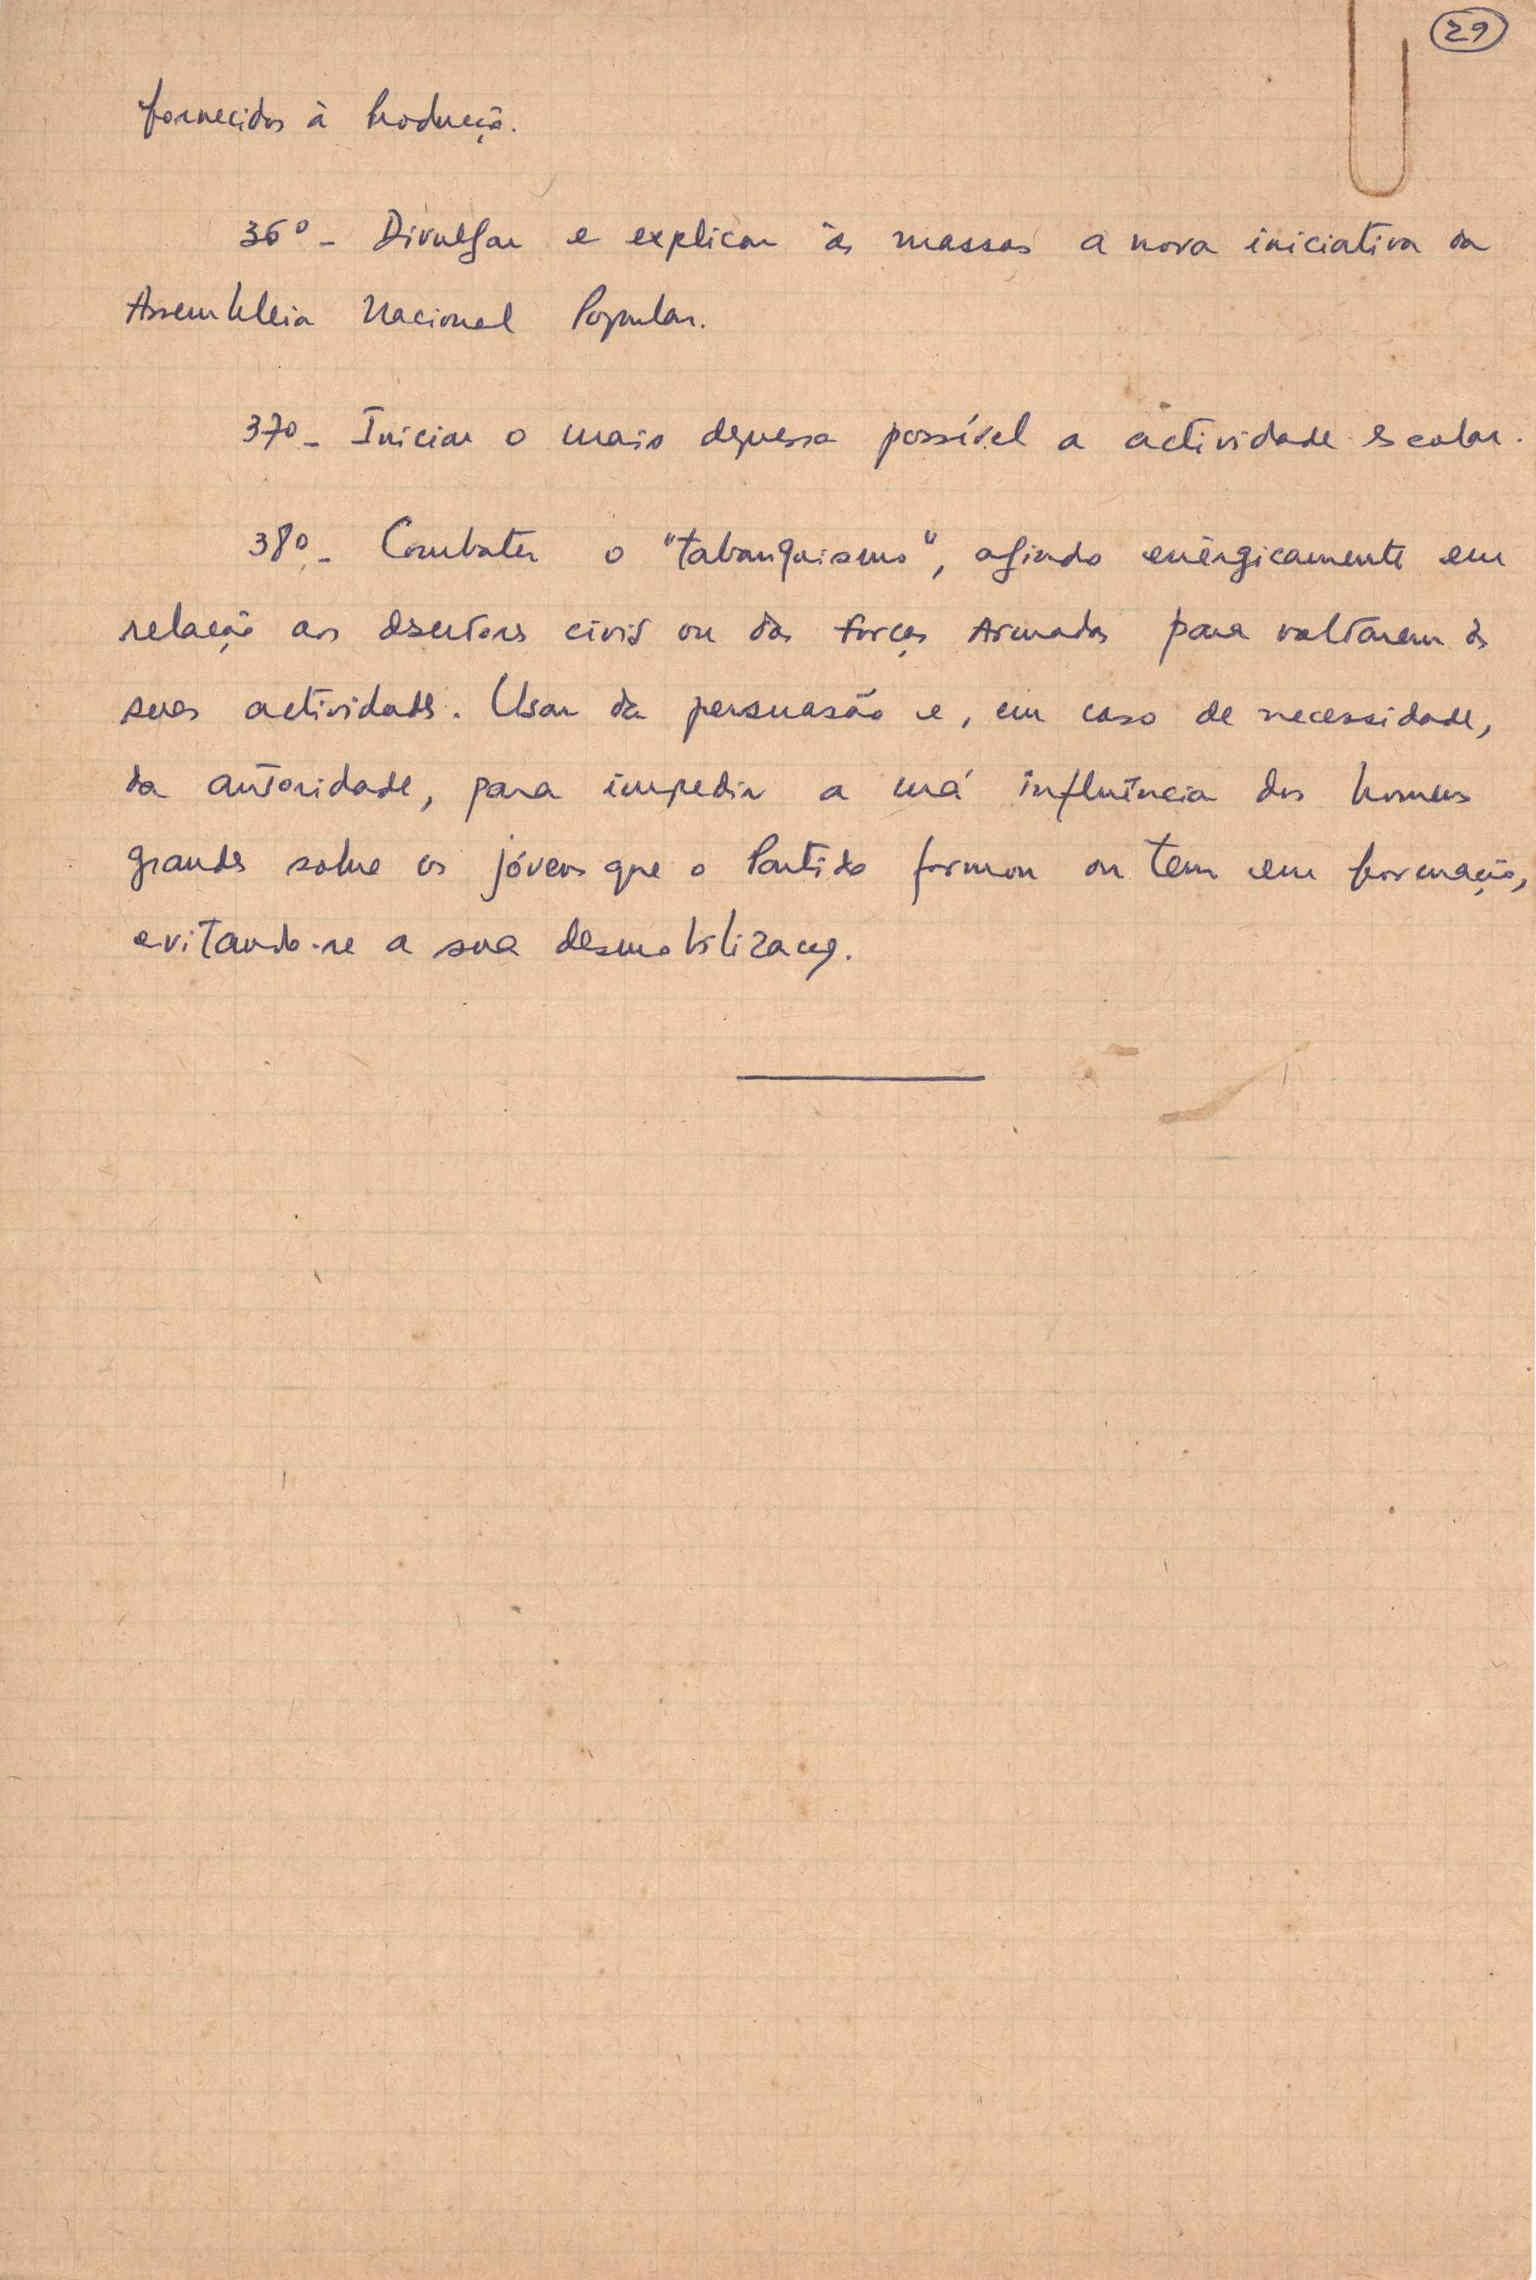 29
fornecidos à Produção.
36º - Divulgar e explicar às massas a nova iniciativa da
Assembleia Nacional Popular.
37º - Iniciar o mais depressa possível a actividade escolar.
38º - Combater o "tabanquismo", agindo enèrgicamente em
relação aos desertores civis ou das Forças Armadas para voltarem às
suas actividades. Usar da persuasão e, em caso de necessidade,
da autoridade, para impedir a má influência dos homens
grandes sobre os jóvens que o Partido formou ou tem em formação,
evitando-se a sua desmobilização.